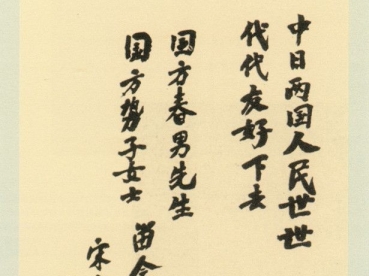 中日两国人民世世
代代友好下去
国方春男先生
国方势子女士
留念
宋